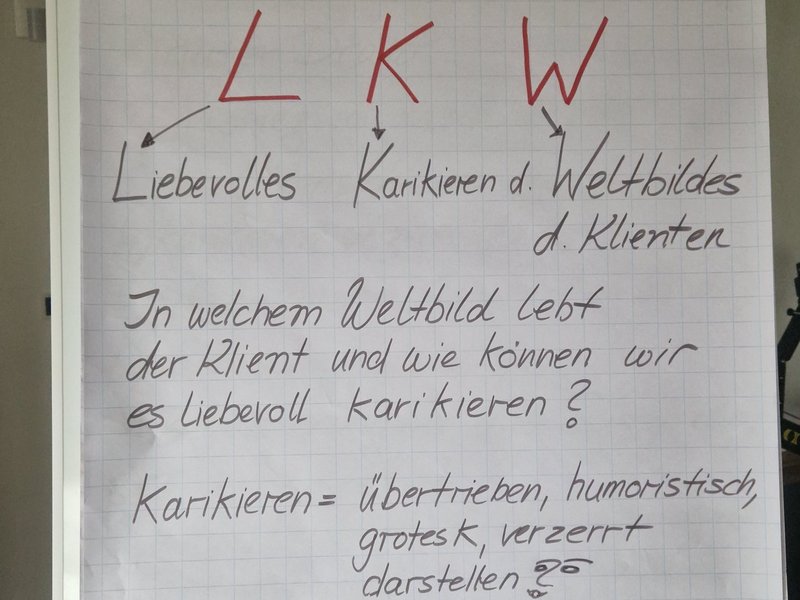 L K W
Liebevolles Karikieren d. Weltbildes
d. Klienten
In welchem Weltbild lebt
der Klient und wie können wir
es liebevoll karikieren?
Karikieren = übertrieben, humoristisch,
grotesk, verzerrt
darstellen